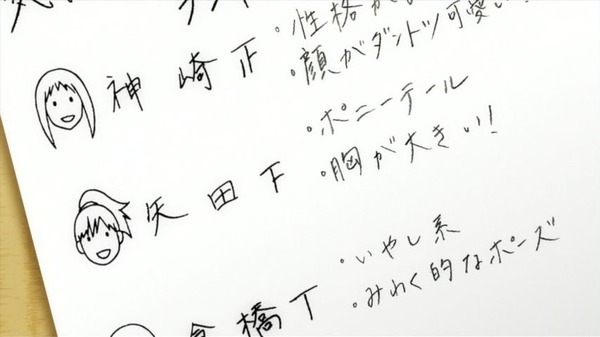 ・性格が
神崎 正 ・顔がダントツ可愛い!
・ポニーテール
矢田 下 ・胸が大きい!
・いやし系
倉橋 T ・みわく的なポーズ